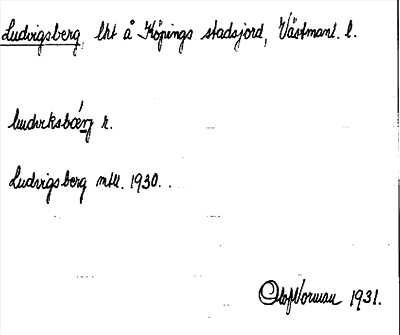 Ludvigsberg, lht å Köpings stadsjord, Västmanl. l.
r.
Ludvigsberg mtl. 1930.
Olof Norman 1931.